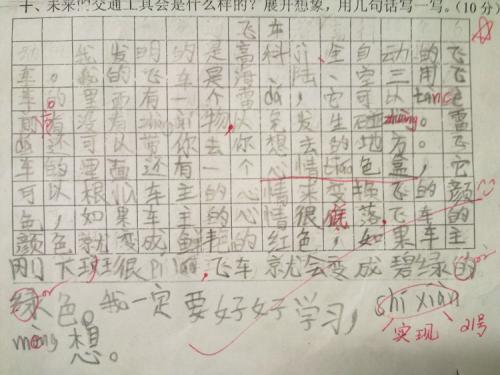 十、未来的交通工具会是什么样的?展开想象,用几句话写一写。(10分)
飞车
我发的是高科计全自动的飞
车。我的飞车是海陆、空三用飞
车。的里面有一个雷dá,它可以tànce
前看没有zhàng物,免发生碰zhuàng。雷
dá还可以带你去你想去的地方。飞
车的里面还有一个心情色盒,它
可以根心车主的心情来变换飞的颜
色,如果车主的心情很低落,飞车的
颜色就变成鲜艳的红色,如果车主
刚下班很pí láo,飞车就会变成碧绿的
绿色。我一定要好好学习,shí xiàn
mèng想。
实现
21号